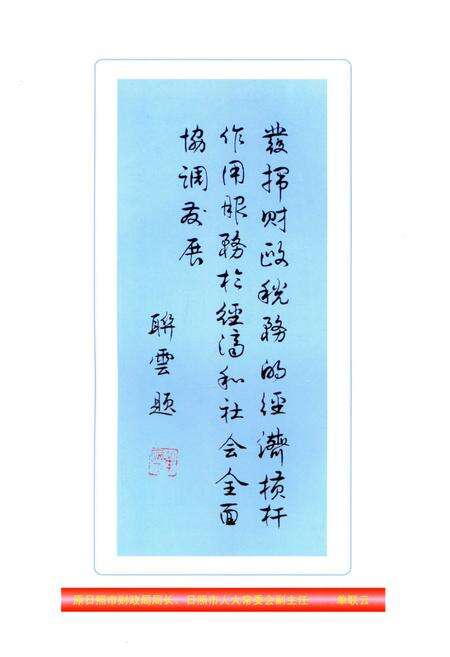 發挥财政税務的經濟横杆
作用服務於經濟和社会全面
協调发展
聯雲题
原日照市财政局局长、日照市人大常委会副主任 单联云